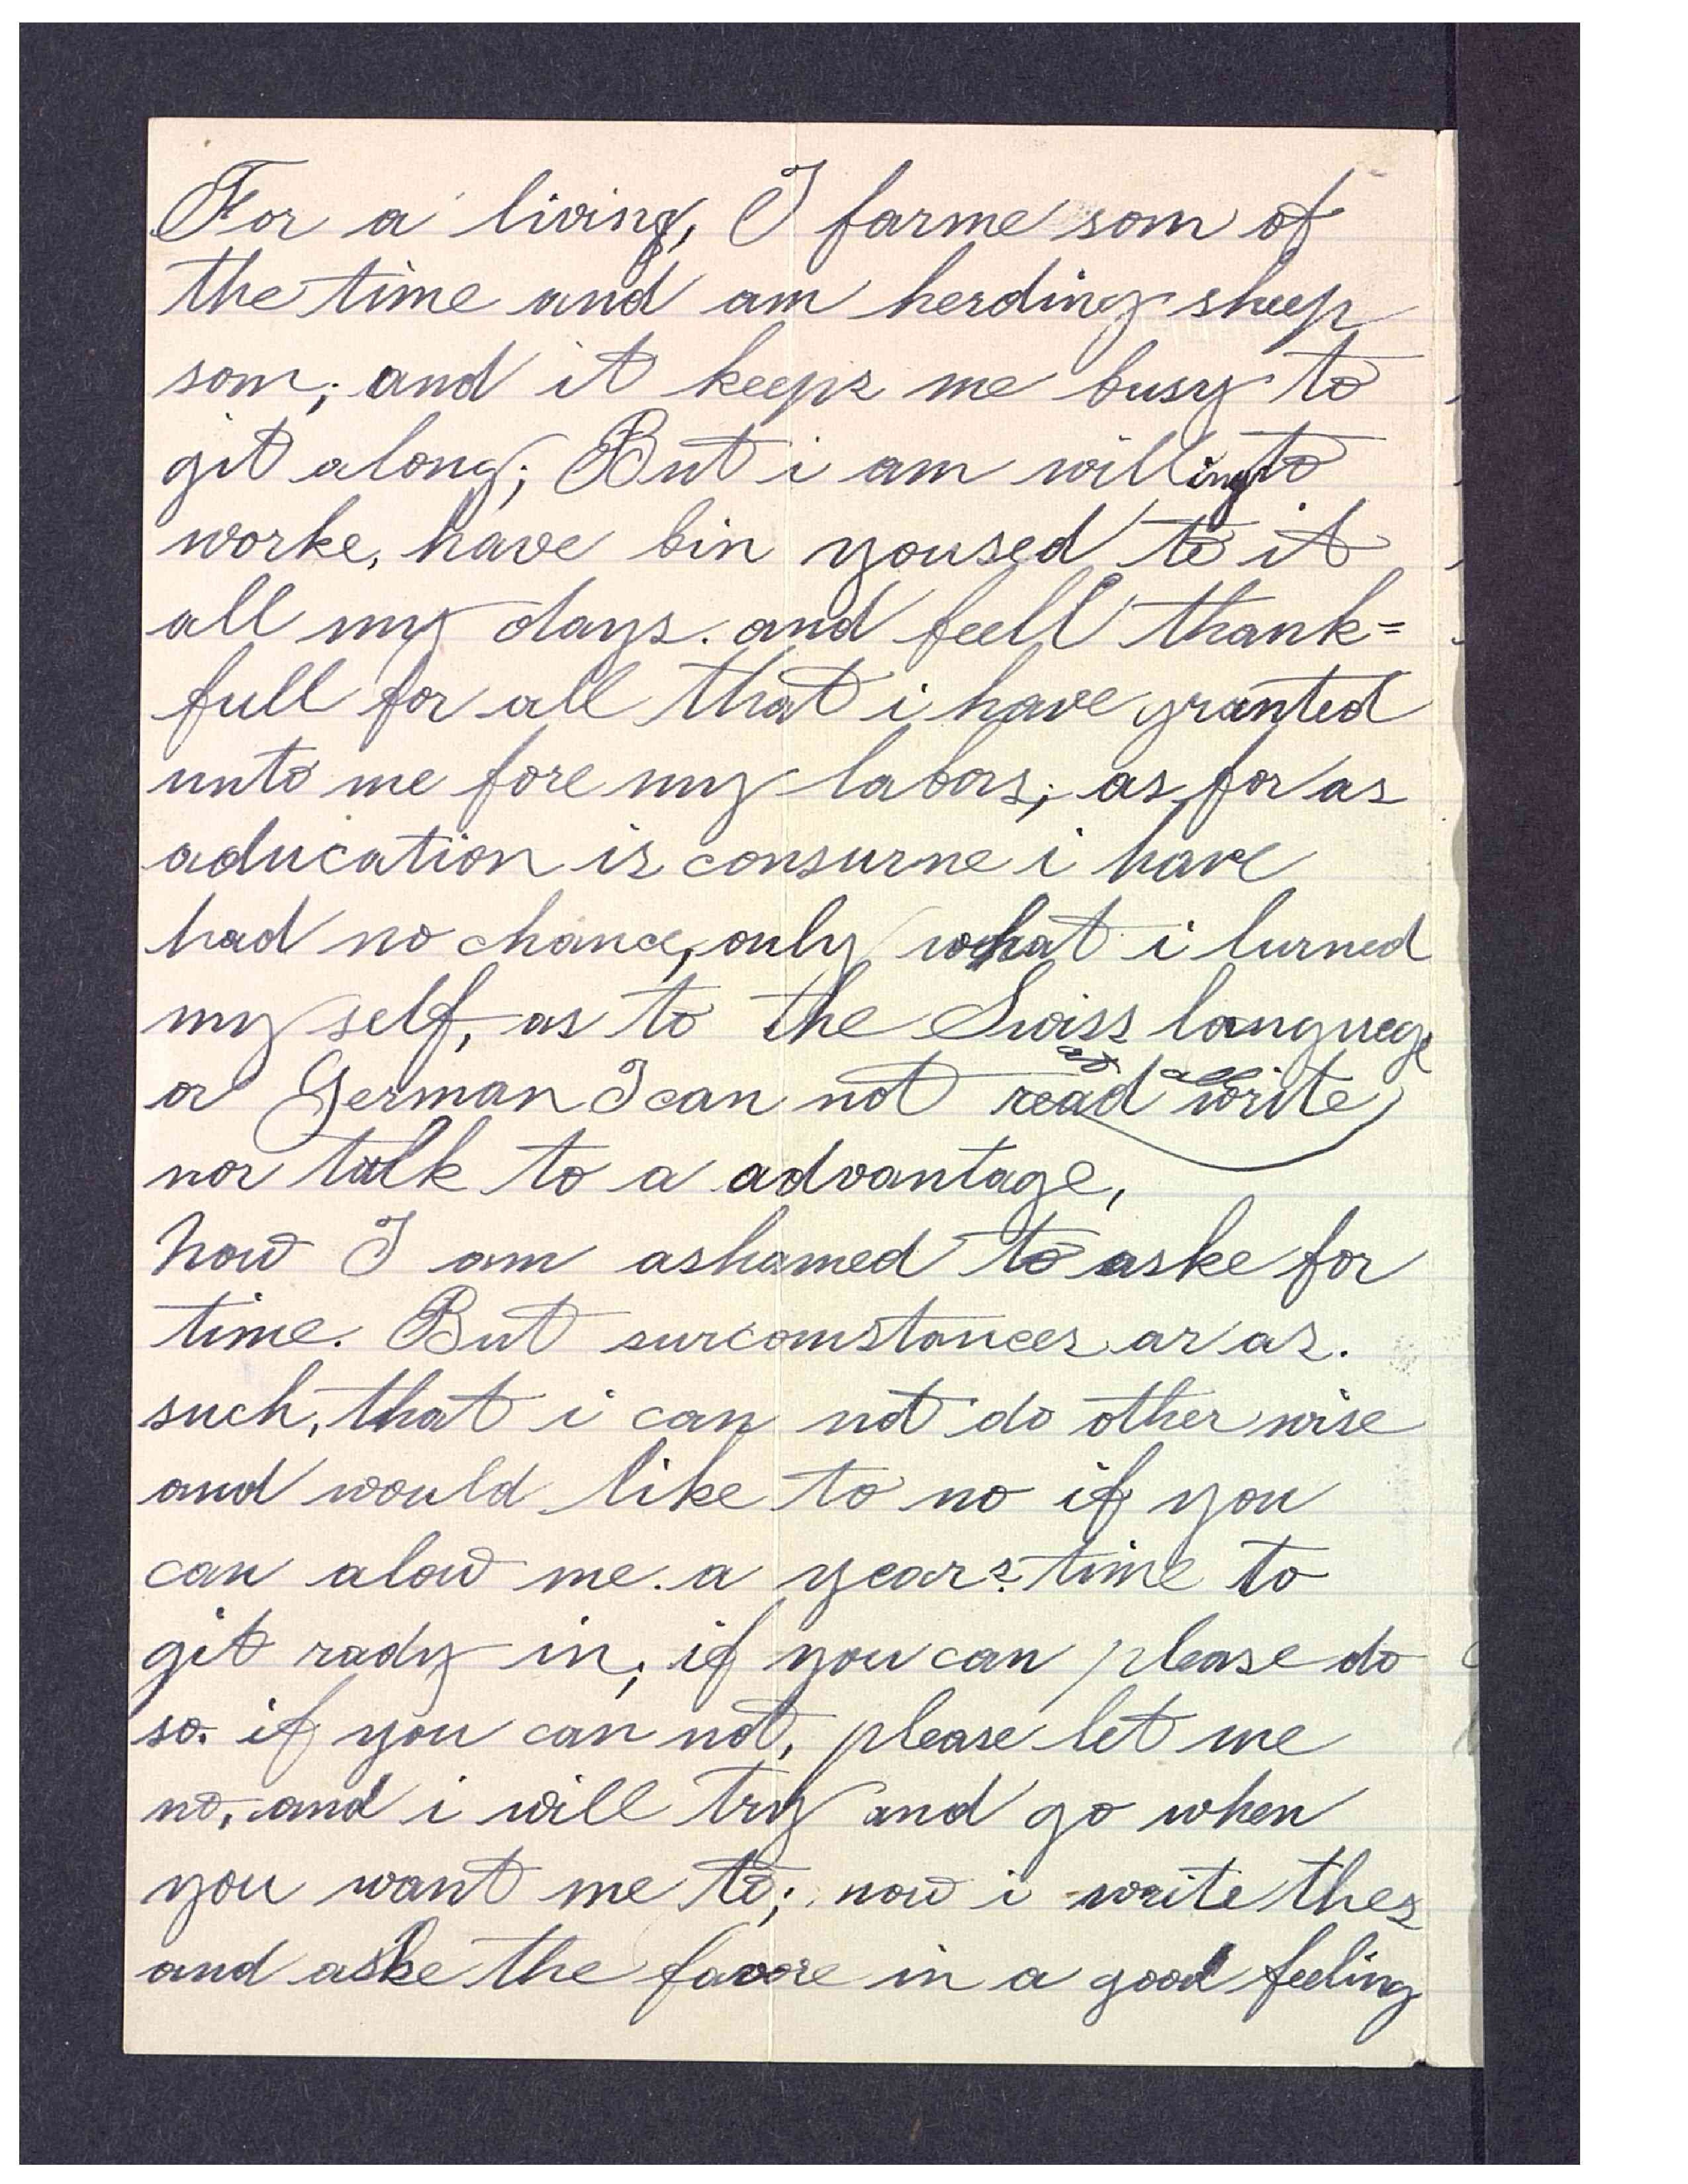 For a living, I farme som of
the time and am herding sheep
som; and it keeps me busy to
git along; But i am willing to
worke, have bin yoused to it
all my days. and feell thank=
full for all that i have granted
unto me fore my labors; as for as
aducation is consurne i have
had no chance, only what i lurned
my self, as to the Swiss langueg
or German I can not read at all write
nor talk to a advantage,
now I am ashamed to aske for
time. But surcomstances ar as.
such, that i can not do other wise
and would like to no if you
can alow me. a years time to
git rady in; if you can please do
so. if you can not, please let me
no, and i will try and go when
you want me to; now i write thes
and aske the favore in a good feeling